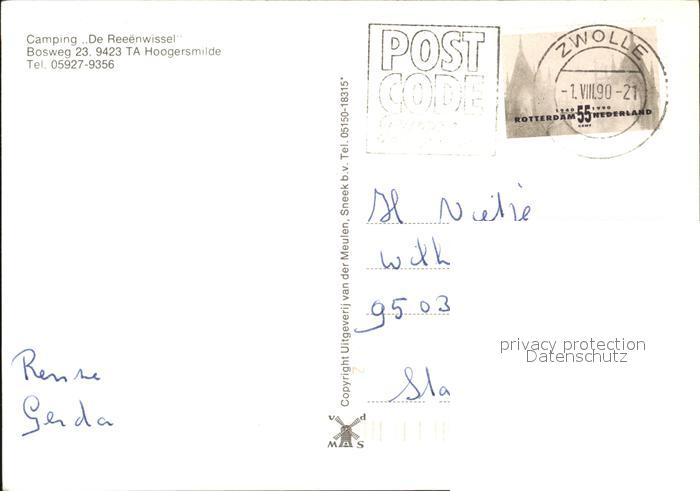 Camping „De Reeënwissel"
Bosweg 23. 9423 TA Hoogersmilde
Tel. 05927-9356
POST
CODE
ZWOLLE
-1.VIII.90-21
1940 1990
ROTTERDAM 55 NEDERLAND
CENT
Copyright Uitgeverij van der Meulen, Sneek b.v. Tel. 05150-18315*
9503
Sta
privacy protection
Datenschutz
Rense
Gerda
v d
M S